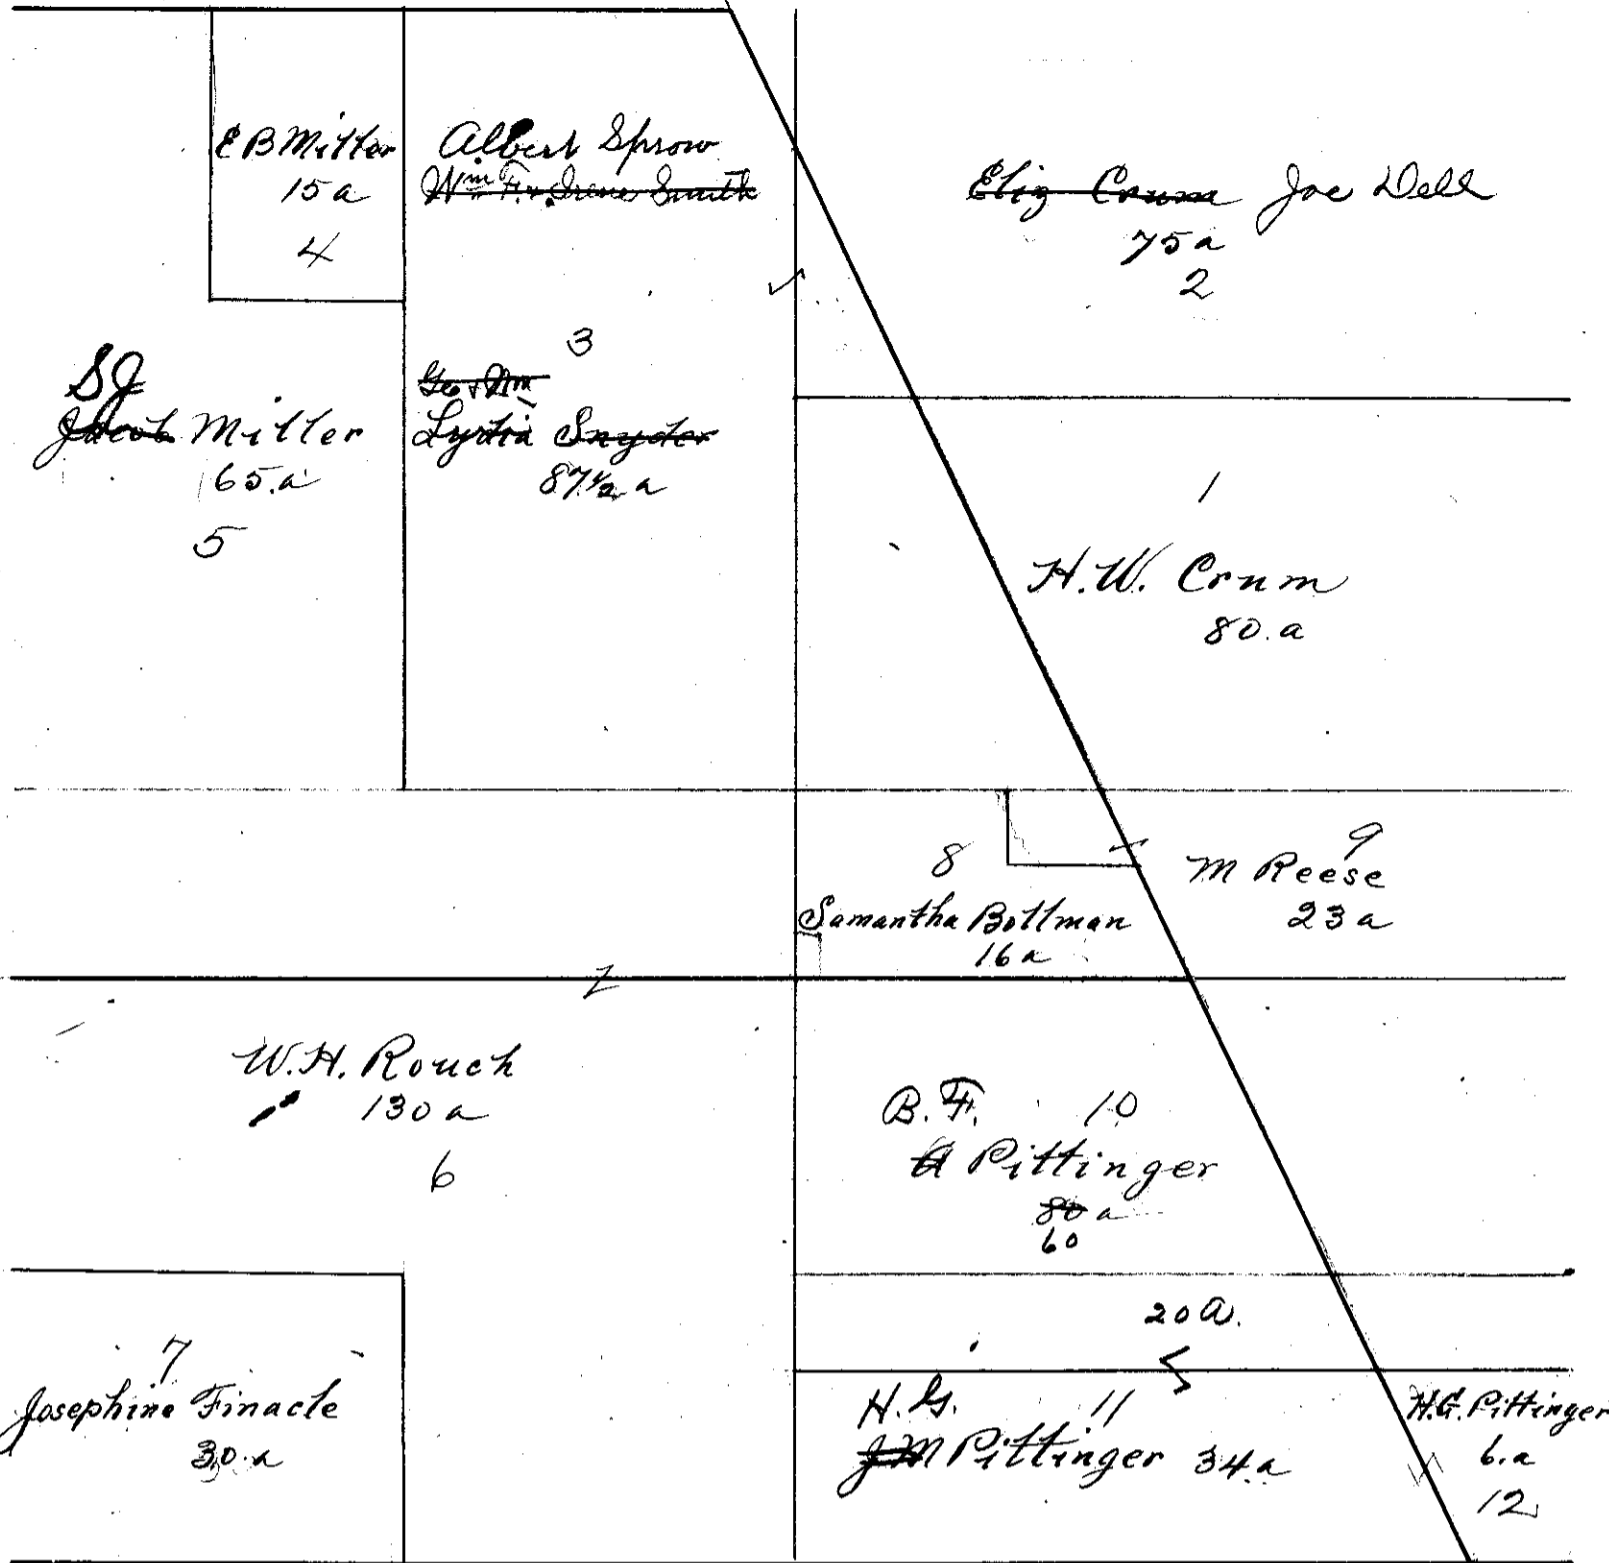 E B Miller
15 a
4
Albert Sprow
Wm F. & Irene Smith
Eliz Crum Joe Dell
75 a
2
3
S J
Jacob Miller
65. a
5
Geo & Wm
Lydia Snyder
87 1/2 a
1
H. W. Crum
80. a
8
Samantha Bottman
16 a
9
M Reese
23 a
W. H. Rouch
130 a
6
B. F. 10
Pittinger
80 a
60
20 a.
7
Josephine Finacle
30. a
H. G. 11
J M Pittinger 34. a
H. G. Pittinger
6. a
12